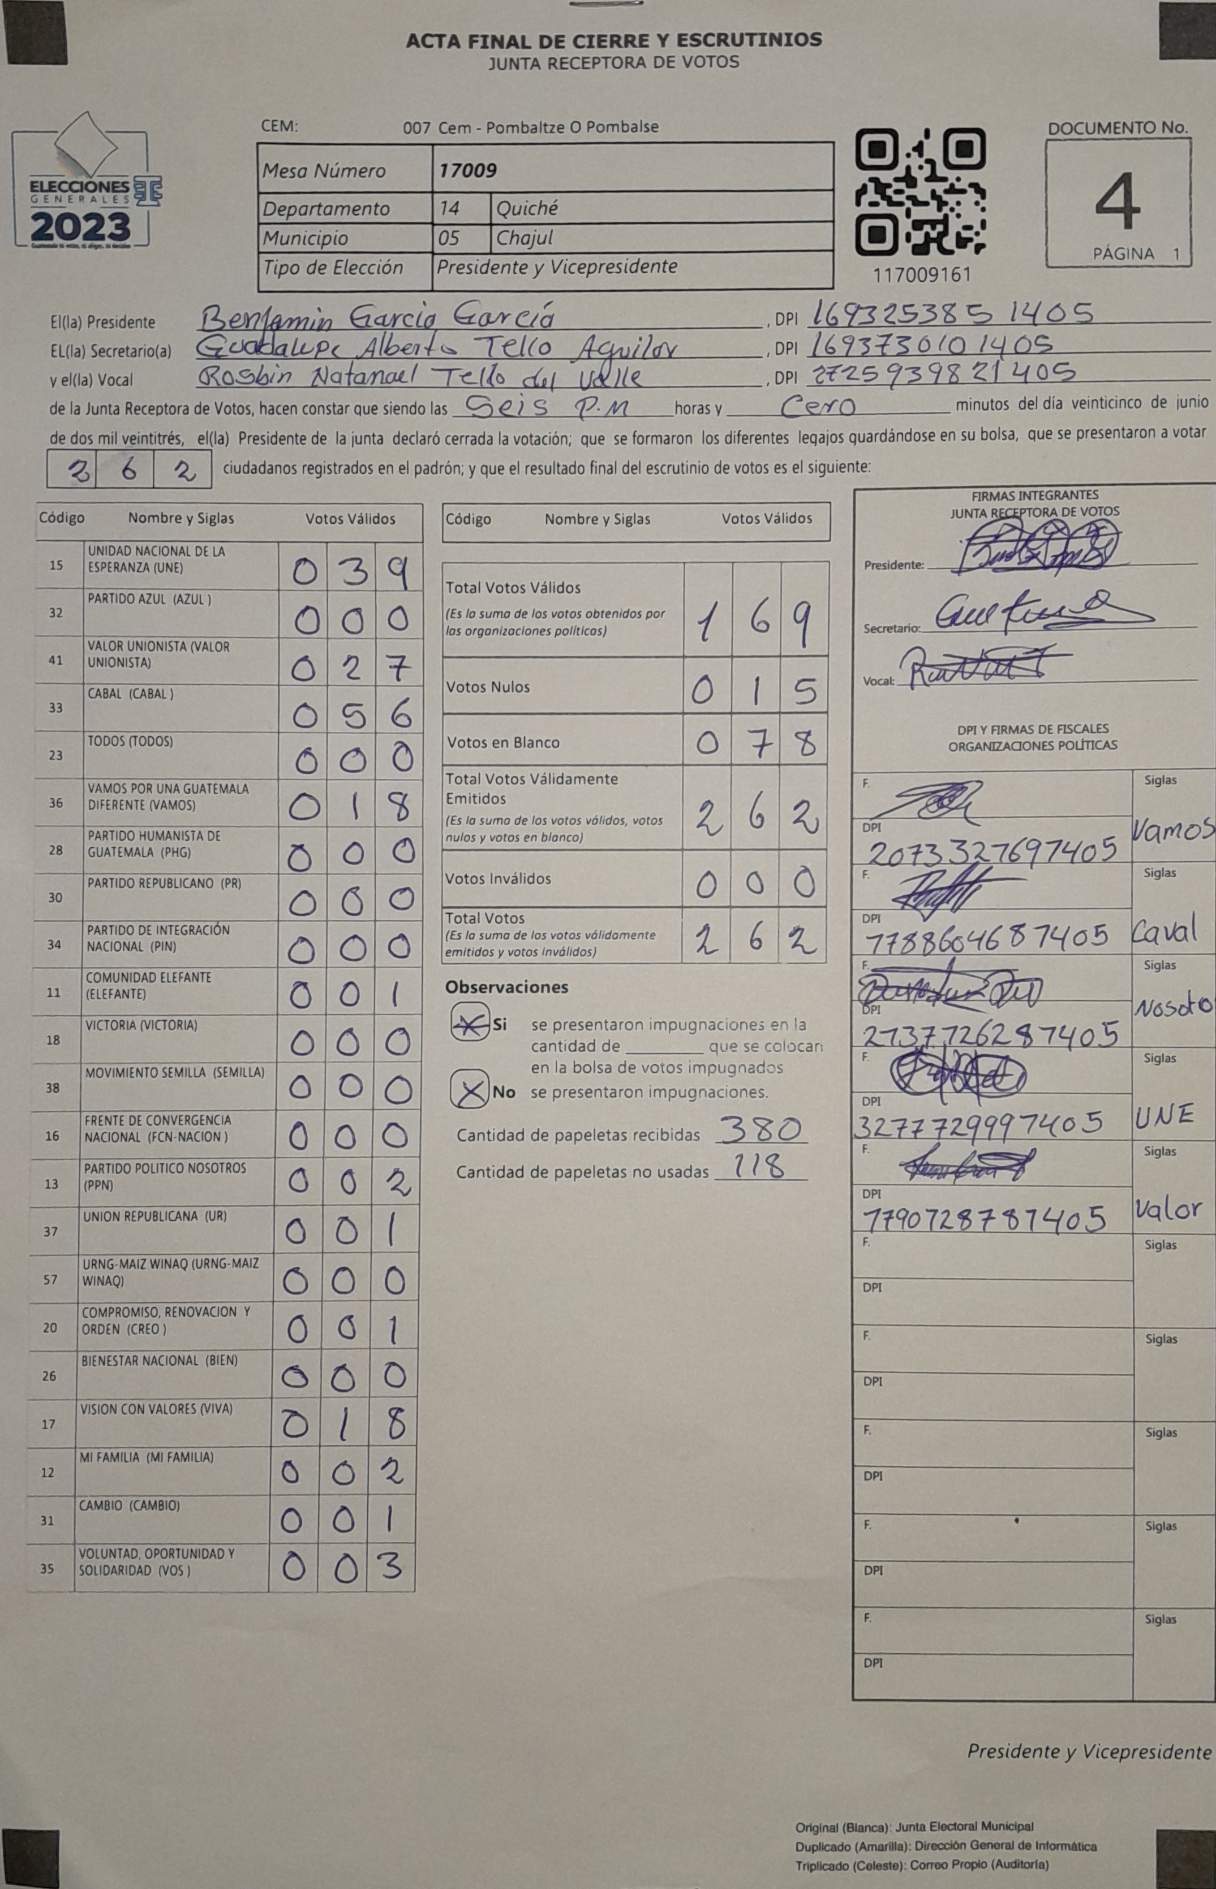 ACTA FINAL DE CIERRE Y ESCRUTINIOS
JUNTA RECEPTORA DE VOTOS
ELECCIONES
GENERALES
2023
CEM: 007 Cem - Pombaltze O Pombalse
Mesa Número 17009
Departamento 14 Quiché
Municipio 05 Chajul
Tipo de Elección Presidente y Vicepresidente
117009161
DOCUMENTO No.
4
PÁGINA 1
El(la) Presidente Benjamin Garcia Garcia, DPI 169325385 1405
EL(la) Secretario(a) Guadalupe Alberto Tello Aguilar, DPI 1693730101405
y el(la) Vocal Rosbin Natanael Tello del Valle, DPI 2725939821405
de la Junta Receptora de Votos, hacen constar que siendo las Seis P.M horas y Cero minutos del día veinticinco de junio
de dos mil veintitrés, el(la) Presidente de la junta declaró cerrada la votación; que se formaron los diferentes legajos guardándose en su bolsa, que se presentaron a votar
262 ciudadanos registrados en el padrón; y que el resultado final del escrutinio de votos es el siguiente:
Código Nombre y Siglas Votos Válidos
15 UNIDAD NACIONAL DE LA ESPERANZA (UNE) 0 3 9
32 PARTIDO AZUL (AZUL ) 0 0 0
41 VALOR UNIONISTA (VALOR UNIONISTA) 0 2 7
33 CABAL (CABAL ) 0 5 6
23 TODOS (TODOS) 0 0 0
36 VAMOS POR UNA GUATEMALA DIFERENTE (VAMOS) 0 1 8
28 PARTIDO HUMANISTA DE GUATEMALA (PHG) 0 0 0
30 PARTIDO REPUBLICANO (PR) 0 0 0
34 PARTIDO DE INTEGRACIÓN NACIONAL (PIN) 0 0 0
11 COMUNIDAD ELEFANTE (ELEFANTE) 0 0 1
18 VICTORIA (VICTORIA) 0 0 0
38 MOVIMIENTO SEMILLA (SEMILLA) 0 0 0
16 FRENTE DE CONVERGENCIA NACIONAL (FCN-NACION ) 0 0 0
13 PARTIDO POLITICO NOSOTROS (PPN) 0 0 2
37 UNION REPUBLICANA (UR) 0 0 1
57 URNG-MAIZ WINAQ (URNG-MAIZ WINAQ) 0 0 0
20 COMPROMISO, RENOVACION Y ORDEN (CREO ) 0 0 1
26 BIENESTAR NACIONAL (BIEN) 0 0 0
17 VISION CON VALORES (VIVA) 0 1 8
12 MI FAMILIA (MI FAMILIA) 0 0 2
31 CAMBIO (CAMBIO) 0 0 1
35 VOLUNTAD, OPORTUNIDAD Y SOLIDARIDAD (VOS ) 0 0 3
Código Nombre y Siglas Votos Válidos
Total Votos Válidos
(Es la suma de los votos obtenidos por
las organizaciones políticas) 1 6 9
Votos Nulos 0 1 5
Votos en Blanco 0 7 8
Total Votos Válidamente
Emitidos
(Es la suma de los votos válidos, votos
nulos y votos en blanco) 2 6 2
Votos Inválidos 0 0 0
Total Votos
(Es la suma de los votos válidamente
emitidos y votos inválidos) 2 6 2
Observaciones
X Si se presentaron impugnaciones en la
cantidad de ________ que se colocan
en la bolsa de votos impugnados
X No se presentaron impugnaciones.
Cantidad de papeletas recibidas 380
Cantidad de papeletas no usadas 118
FIRMAS INTEGRANTES
JUNTA RECEPTORA DE VOTOS
Presidente:
Secretario:
Vocal:
DPI Y FIRMAS DE FISCALES
ORGANIZACIONES POLÍTICAS
F. Siglas
DPI 2073327697405 Vamos
F. Siglas
DPI 7788604687405 Caval
F. Siglas
DPI 2737726287405 Nosotro
F. Siglas
DPI 3277729997405 UNE
F. Siglas
DPI 7790728787405 Valor
F. Siglas
DPI
F. Siglas
DPI
F. Siglas
DPI
F. Siglas
DPI
F. Siglas
DPI
Presidente y Vicepresidente
Original (Blanca): Junta Electoral Municipal
Duplicado (Amarilla): Dirección General de Informática
Triplicado (Celeste): Correo Propio (Auditoría)